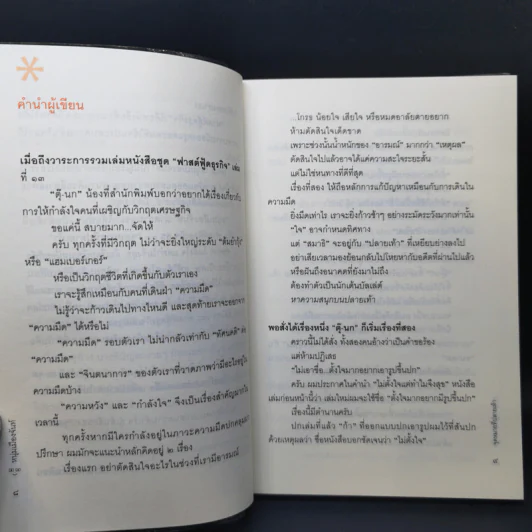 คำนำผู้เขียน
เมื่อถึงวาระการรวมเล่มหนังสือชุด "ฟาสต์ฟู้ดธุรกิจ" เล่ม
ที่ ๑๓
"ตุ๊-นก" น้องที่สำนักพิมพ์บอกว่าอยากได้เรื่องเกี่ยวกับ
การให้กำลังใจคนที่เผชิญกับวิกฤตเศรษฐกิจ
ขอแค่นี้ สบายมาก...จัดให้
ครับ ทุกครั้งที่มีวิกฤต ไม่ว่าจะยิ่งใหญ่ระดับ "ต้มยำกุ้ง"
หรือ "แฮมเบอร์เกอร์"
หรือเป็นวิกฤตชีวิตที่เกิดขึ้นกับตัวเราเอง
เราจะรู้สึกเหมือนกับคนที่เดินฝ่า "ความมืด"
ไม่รู้ว่าจะก้าวเดินไปทางไหนดี และสุดท้ายเราจะออกจาก
"ความมืด" ได้หรือไม่
"ความมืด" รอบตัวเรา ไม่น่ากลัวเท่ากับ "ทัศนคติ" ต่อ
"ความมืด"
และ "จินตนาการ" ของตัวเราที่วาดภาพว่ามีอะไรอยู่ใน
ความมืดบ้าง
"ความหวัง" และ "กำลังใจ" จึงเป็นเรื่องสำคัญมากใน
เวลานี้
ทุกครั้งหากมีใครกำลังอยู่ในภาวะความมืดปกคลุมมา
ปรึกษา ผมมักจะแนะนำหลักคิดอยู่ ๒ เรื่อง
เรื่องแรก อย่าตัดสินใจอะไรในช่วงที่เรามีอารมณ์
หนุ่มเมืองจันท์
...โกรธ น้อยใจ เสียใจ หรือหมดอาลัยตายอยาก
ห้ามตัดสินใจเด็ดขาด
เพราะช่วงนั้นน้ำหนักของ "อารมณ์" มากกว่า "เหตุผล"
ตัดสินใจไปแล้วอาจได้แค่ความสะใจระยะสั้น
แต่ไม่ใช่หนทางที่ดีที่สุด
เรื่องที่สอง ให้ถือหลักการแก้ปัญหาเหมือนกับการเดินใน
ความมืด
ยิ่งมืดเท่าไร เราจะยิ่งก้าวช้าๆ อย่างระมัดระวังมากเท่านั้น
"ใจ" อาจกำหนดทิศทาง
แต่ "สมาธิ" จะอยู่กับ "ปลายเท้า" ที่เหยียบย่างลงไป
อย่าเสียเวลามองย้อนกลับไปโหยหากับอดีตที่ผ่านไปแล้ว
หรือฝันถึงอนาคตที่ยังมาไม่ถึง
ต้องทำตัวเป็นนักเต้นบัลเลต์
หาความสนุกบนปลายเท้า
พอสั่งได้เรื่องหนึ่ง "ตุ๊-นก" ก็เริ่มเรื่องที่สอง
คราวนี้ไม่ได้สั่ง ทั้งสองคนอ้างว่าเป็นคำขอร้อง
แต่ห้ามปฏิเสธ
"ไม่เอาชื่อ...ตั้งใจมากอยากเอารูปขึ้นปก"
ครับ ผมประกาศในคำนำ "ไม่ตั้งใจแต่ทำไมจึงสุข" หนังสือ
เล่มก่อนหน้านี้ว่า เล่มใหม่ผมจะใช้ชื่อ "ตั้งใจมากอยากมีรูปขึ้นปก"
เรื่องนี้มีตำนานครับ
ปกเล่มที่แล้ว "ก้า" ที่ออกแบบปกเอารูปผมไว้ที่สันปก
ด้วยเหตุผลว่า ชื่อหนังสือบอกชัดเจนว่า "ไม่ตั้งใจ"